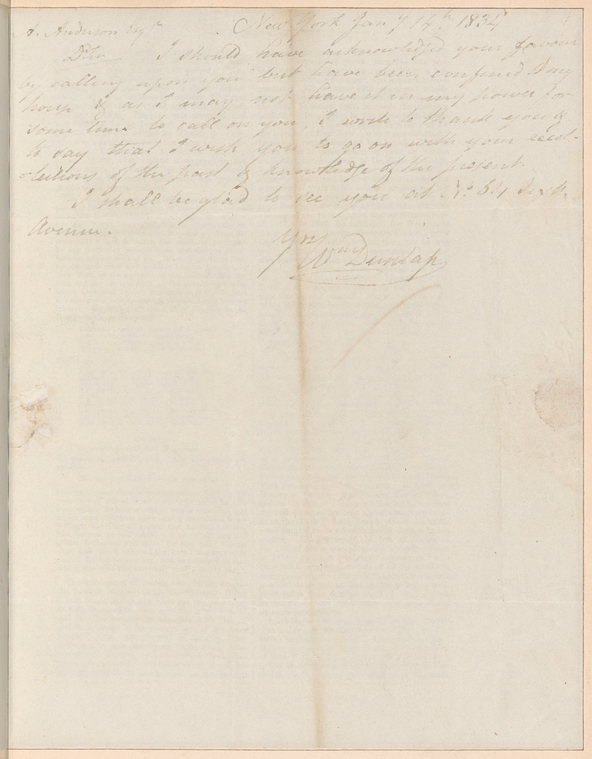 A. Anderson Esqr New York Jany 14th 1834
D Sir I should have acknowledged your favour
by calling upon you but have been confined to my
house & as I may not have it in my power for
some time to call on you, I write to thank you &
to say that I wish you to go on with your recol-
lections of the past & knowledge of the present.
I shall be glad to see you at No. 64 Sixth
Avenue.
Yrs
Wm Dunlap